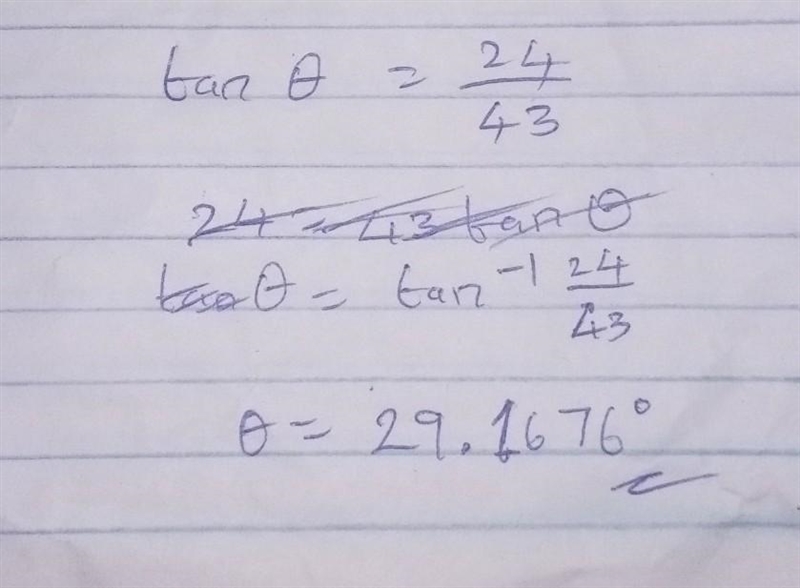 tan θ = 24/43
24 = 43 tan θ
tan θ = tan⁻¹ 24/43
θ = 29.1676°